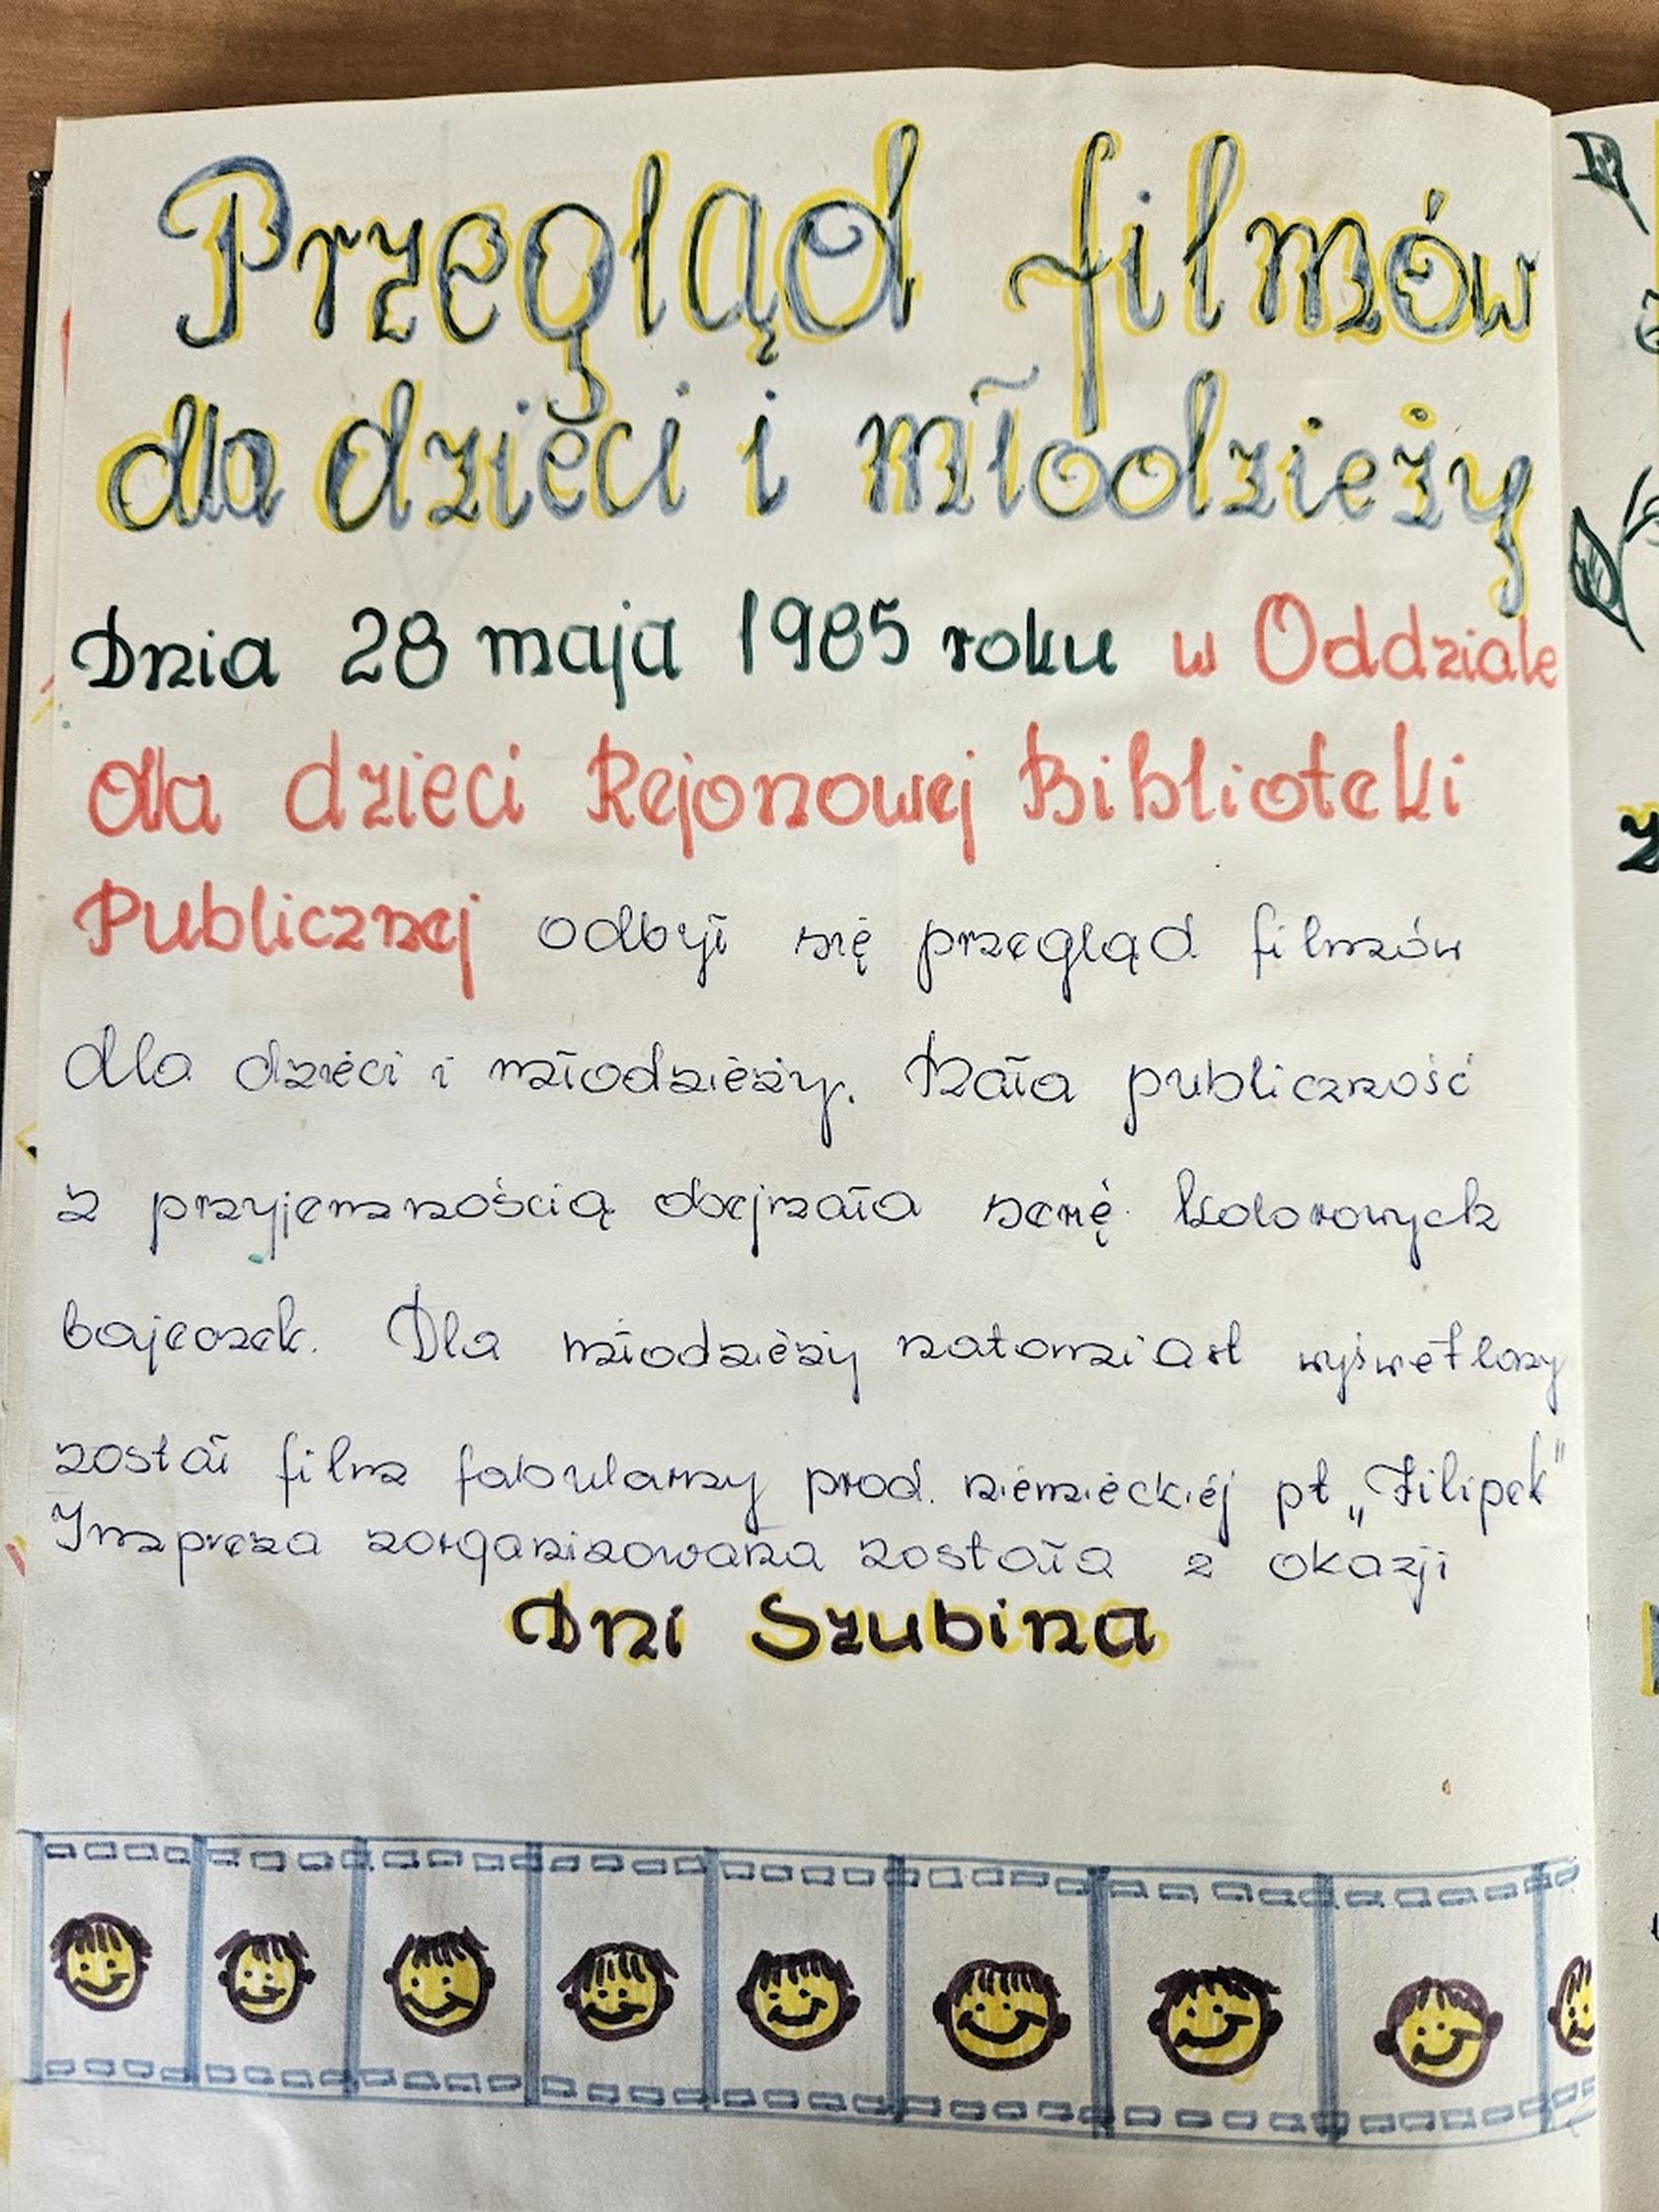 Przegląd filmów
dla dzieci i młodzieży
Dnia 28 maja 1985 roku w Oddziale
dla dzieci Rejonowej Biblioteki
Publicznej odbył się przegląd filmów
dla dzieci i młodzieży. Mała publiczność
z przyjemnością obejrzała serię kolorowych
bajeczek. Dla młodzieży natomiast wyświetlony
został film fabularny prod. niemieckiej pt „Filipek"
Impreza zorganizowana została z okazji
Dni Szubina